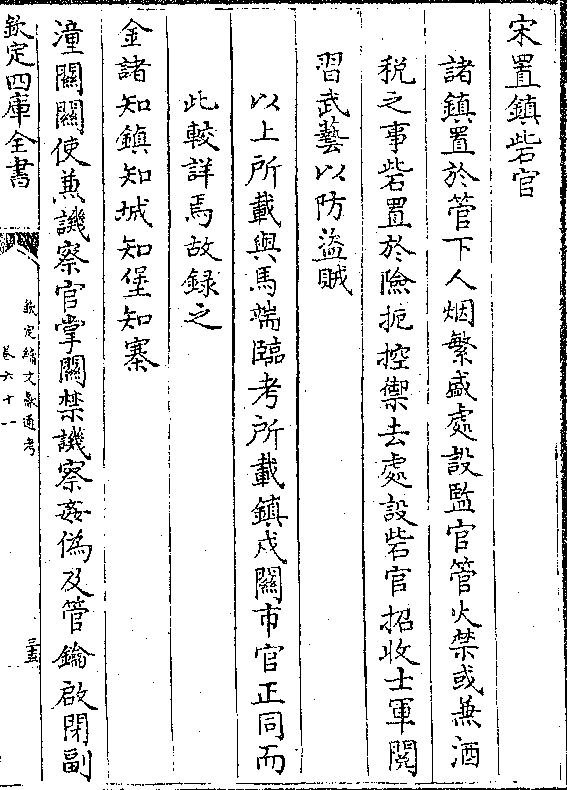 宋置鎮砦官
諸鎮置於管下人烟繁盛處設監官管火禁或兼酒
税之事砦置於險扼控禦去處設砦官招收士軍閲
習武藝以防盜賊
以上所載與馬端臨考所載鎮戍關市官正同而
此較詳焉故録之
金諸知鎮知城知堡知寨
潼關關使兼譏察官掌關禁譏察姦偽及管鑰啟閉副
欽定四庫全書
欽定續文獻通考
卷六十一